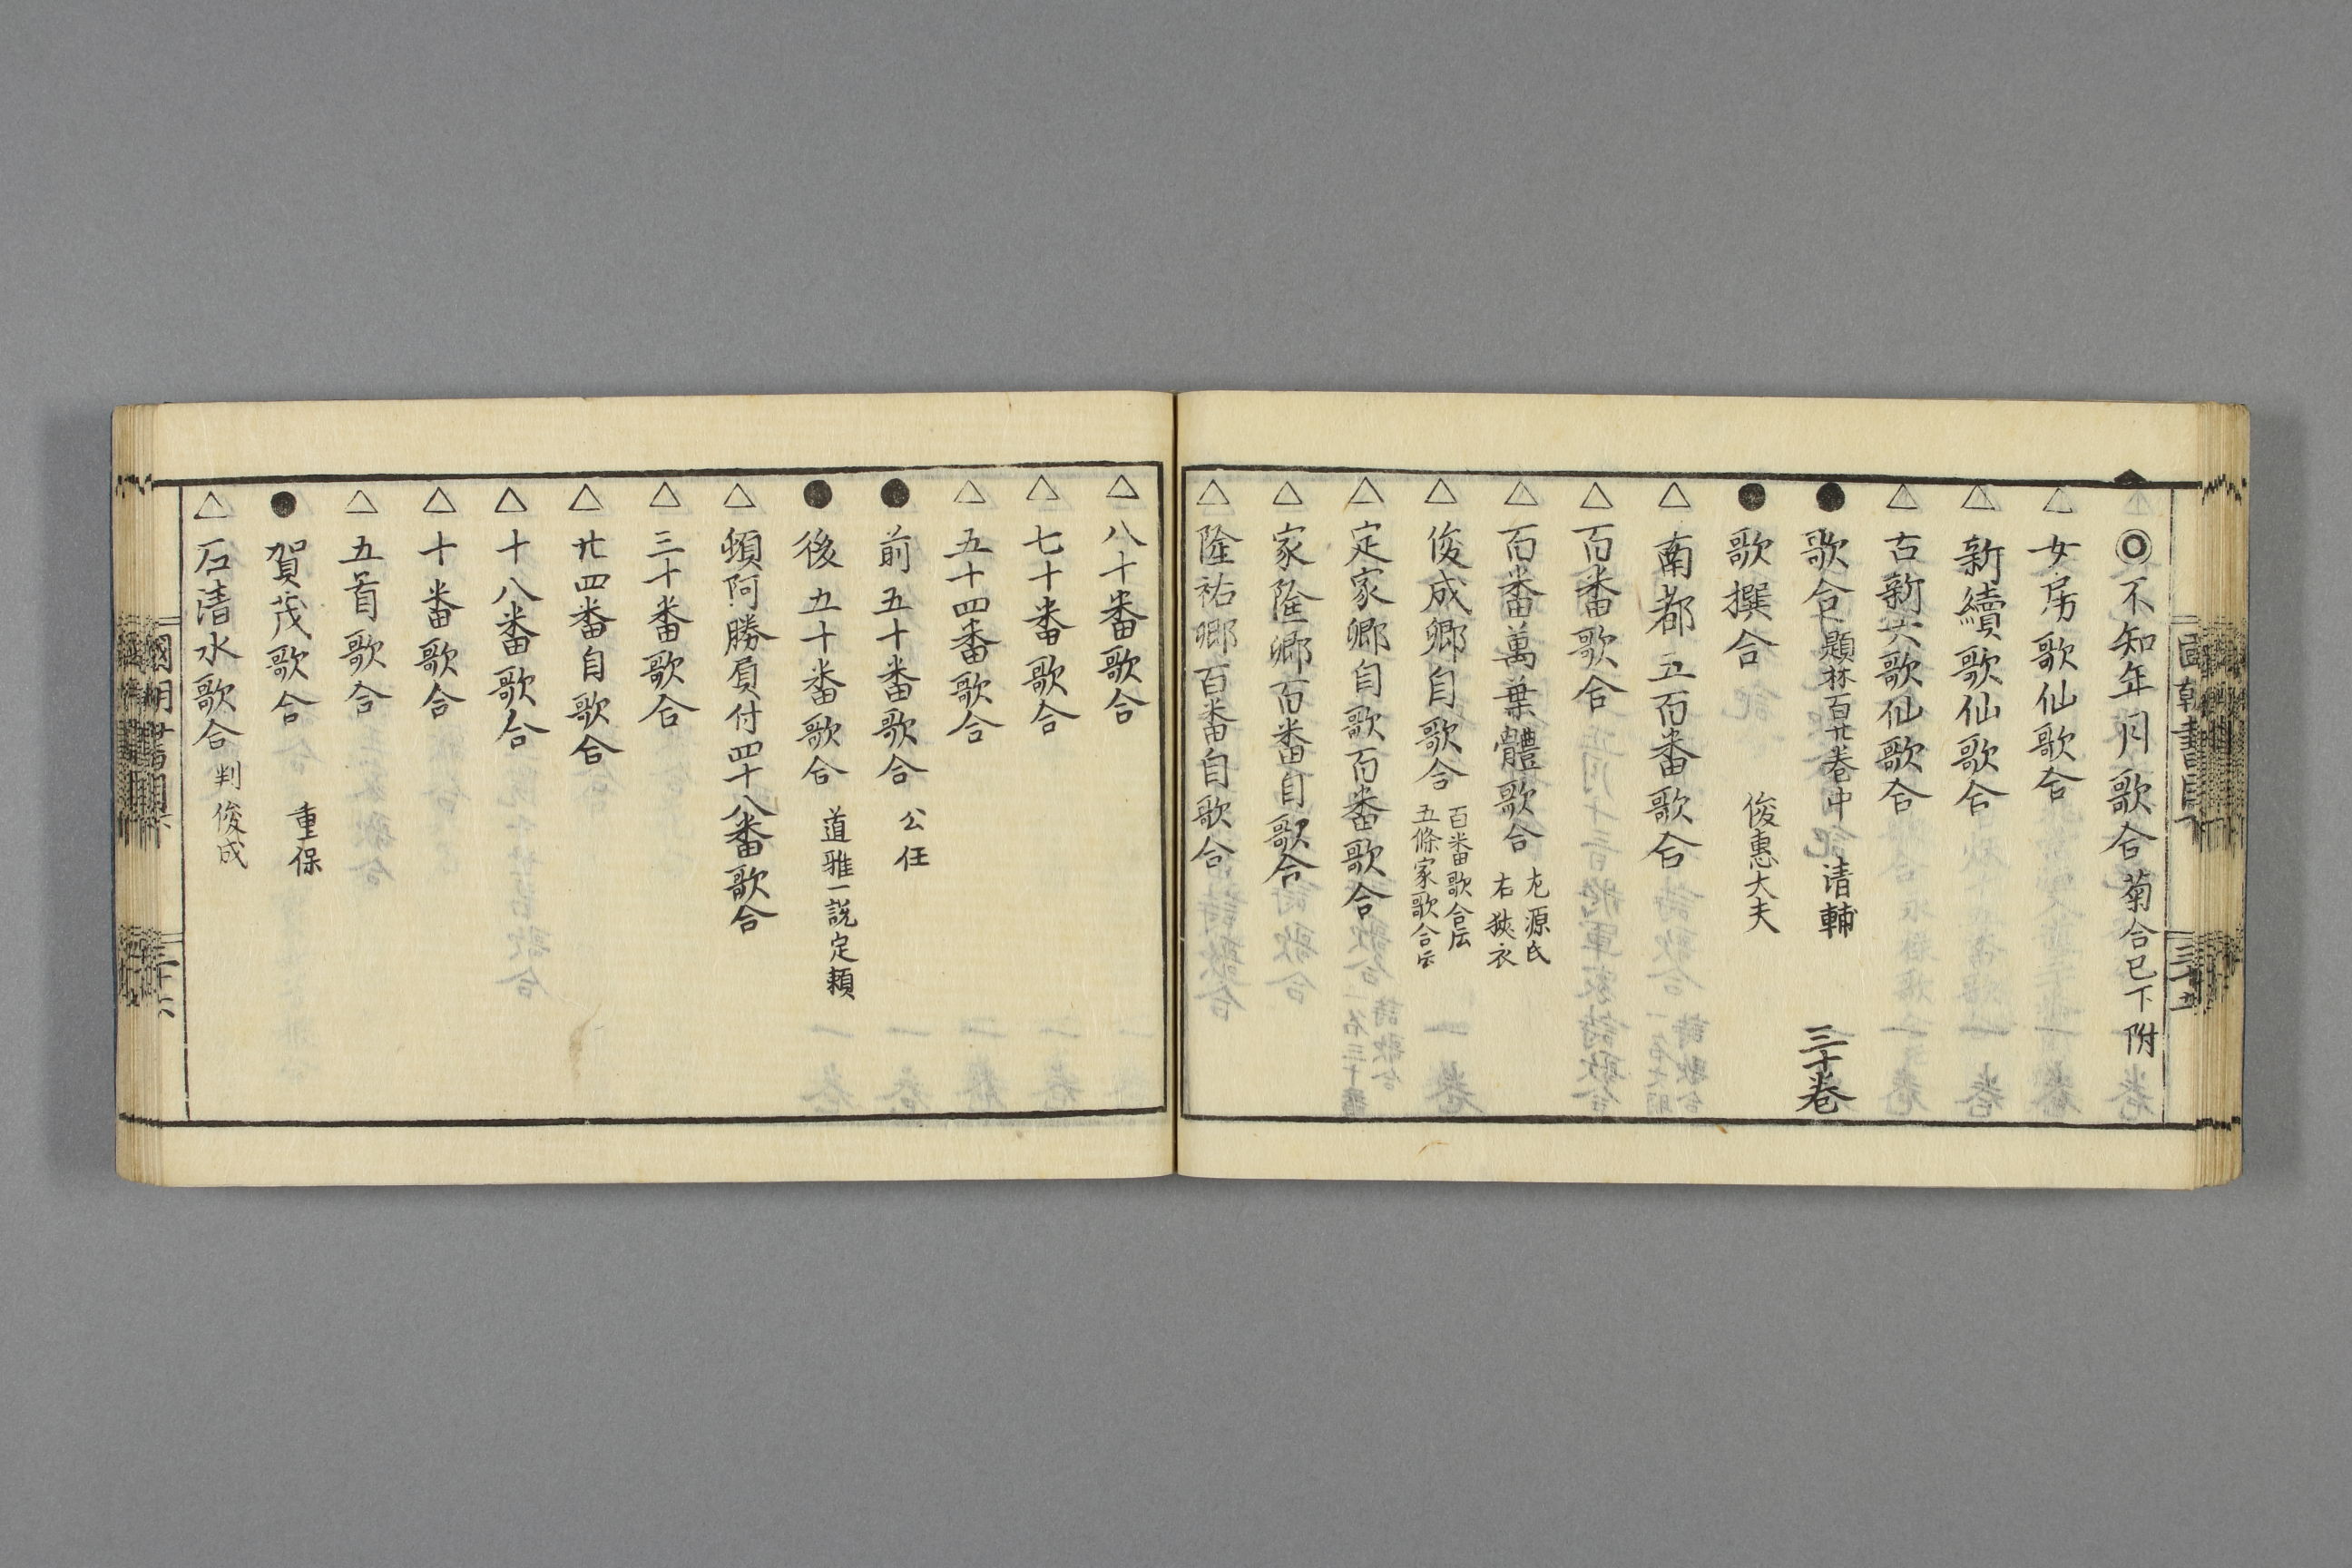 ◎不知年月歌合 菊合已下附
△女房歌仙歌合
△新續歌仙歌合
△古新六歌仙歌合
●歌合 題林百廿卷中 清輔 三十卷
●歌撰合 俊惠大夫
△南都五百番歌合
△百番歌合
△百番萬葉體歌合 左源氏 右狹衣
△俊成卿自歌合 百番歌合 五條家歌合
△定家卿自歌百番歌合
△家隆卿百番自歌合
△隆祐卿百番自歌合
△八十番歌合
△七十番歌合
△五十四番歌合
●前五十番歌合 公任
●後五十番歌合 道雅一説定頼
△頓阿勝負付四十八番歌合
△三十番歌合
△廿四番自歌合
△十八番歌合
△十番歌合
△五首歌合
●賀茂歌合 重保
△石清水歌合 判俊成